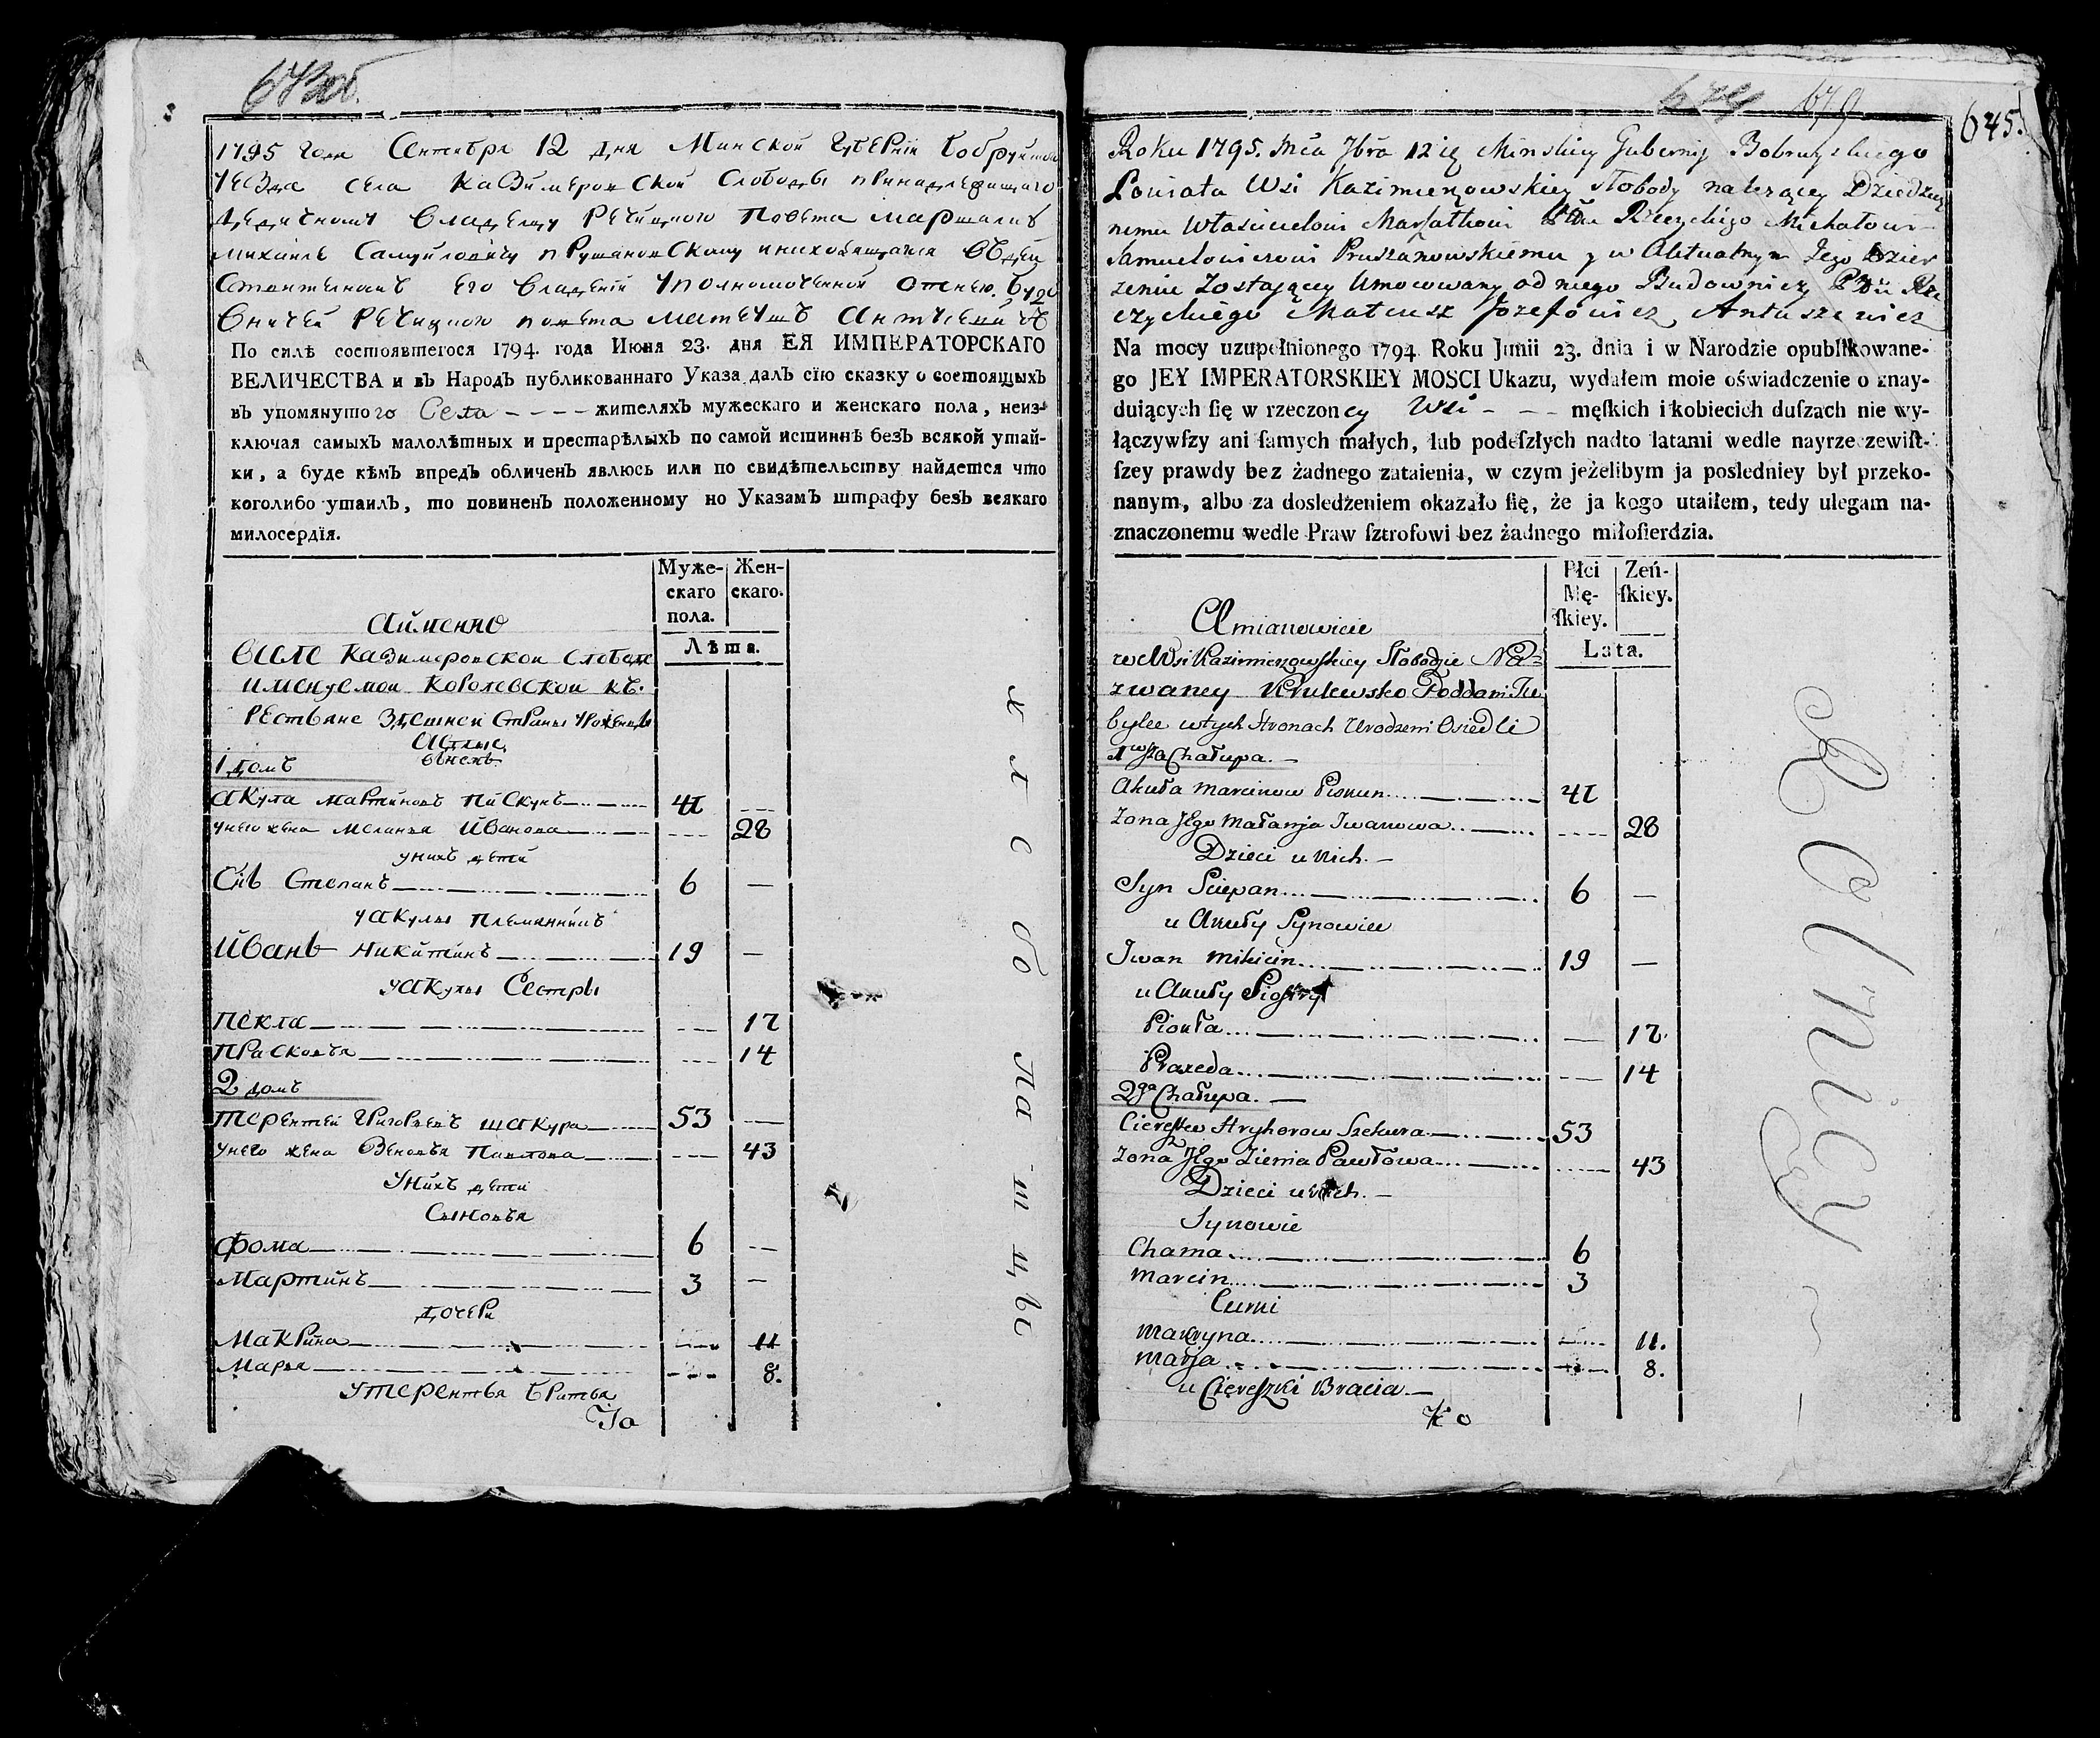 1795 года Сентебря 12 дня Минской Губерніи Бобруйска
Уезда села Казимеровской Слободы принадлежащаго
дедичному владелцу Речицкого Повета Маршалку
Михаиле Самуиловичу Прушановскому
его владеніи уполномоченной
Речицкого повета Матеушъ
По силѣ состоявшегося 1794. года Июня 23. дня ЕЯ ИМПЕРАТОРСКАГО
ВЕЛИЧЕСТВА и въ Народъ публикованнаго Указа далъ сїю сказку о состоящыхъ
въ упомянутого Села - - - - жителяхъ мужескаго и женскаго пола, неиз-
ключая самыхъ малолѣтныхъ и престарѣлыхъ по самой истиннѣ безъ всякой утай-
ки, а буде кѣмъ впредь обличенъ явлюсь или по свидѣтельству найдется что
коголибо утаилъ, то повиненъ положенному по Указамъ штрафу безъ всякаго
милосердїя.
Муже-
скаго
пола.
Жен-
скаго.
Лѣта.
Аименно
Вселе Казимеровской Слободе
именуемой Королевской кѣ:
Рестьяне здешней страны
1 домъ
Акула Мартиновъ Пискунъ 41 —
унего жена Меланья Иванова — 28
унихъ дети
Снъ Степанъ 6 —
уАкулы племянникъ
Иванъ Никитинъ 19 —
уАкулы Сестры
Пекла — 17
Прасковья — 14
2 домъ
Терентей Григорьевъ Шакура 53 —
унего жена Зеновья Павлова — 43
Унихъ дети
Сыновья
Фома 6 —
Мартинъ 3 —
дочери
Макрина — 11
Марья — 8.
УТерентья братья
645.
Roku 1795. Mca 7bra 12 Minskiey Gubernij Bobruyskiego
Powiata Wsi Kazimierzowskiey Słobody należącey Dziedzicz
nemu Właścicielowi Marszałkowi Rzeczyckiego Michałowi
Samuelowiczowi Pruszanowskiemu y w Aktualnym Jego Dzier
zeniu Zostającey Umocowany od niego Budowniczy
czyckiego Mateusz Jozefowicz Antuszewicz
Na mocy uzupełnionego 1794 Roku Junii 23. dnia i w Narodzie opublikowane-
go JEY IMPERATORSKIEY MOSCI Ukazu, wydałem moie oświadczenie o znay-
duiących ſię w rzeczoney Wsi - - - męſkich i kobiecich duſzach nie wy-
łączywſzy ani ſamych małych, lub podeſzłych nadto latami wedle nayrzeczewiſt-
ſzey prawdy bez żadnego zataienia, w czym jeżelibym ja posledniey był przeko-
nanym, albo za dosledżeniem okazało ſię, że ja kogo utaiłem, tedy ulegam na-
znaczonemu wedle Praw ſztrofowi bez żadnego miłoſierdzia.
Płci
Mę-
ſkiey.
Zeń-
ſkiey.
Lata.
Amianowicie
we Wsi Kazimierzowskiey Słobodzie Na-
zwaney Krulewsko Poddani Tu
bylce wtych Stronach Urodzeni Osiedli
1wsza Chałupa. —
Akuła Marcinow Piskun 41
Zona Jego Małanja Iwanowa — 28
Dzieci u Nich. —
Syn Sciepan 6 —
u Akuły Synowiec
Iwan Mikicin 19 —
u Akuły Siostry
Piokła — 17.
Praxeda — 14
2ga Chałupa. —
Ciereszko Hryhorow Szekura 53
Zona Jego Zienia Pawłowa — 43
Dzieci u Nich. —
Synowie
Chama 6
Marcin 3
Curki
Makryna — 11.
Marja — 8.
u Ciereszki Bracia —
Ko
х л е б о па ш ц ы
Rolnicy